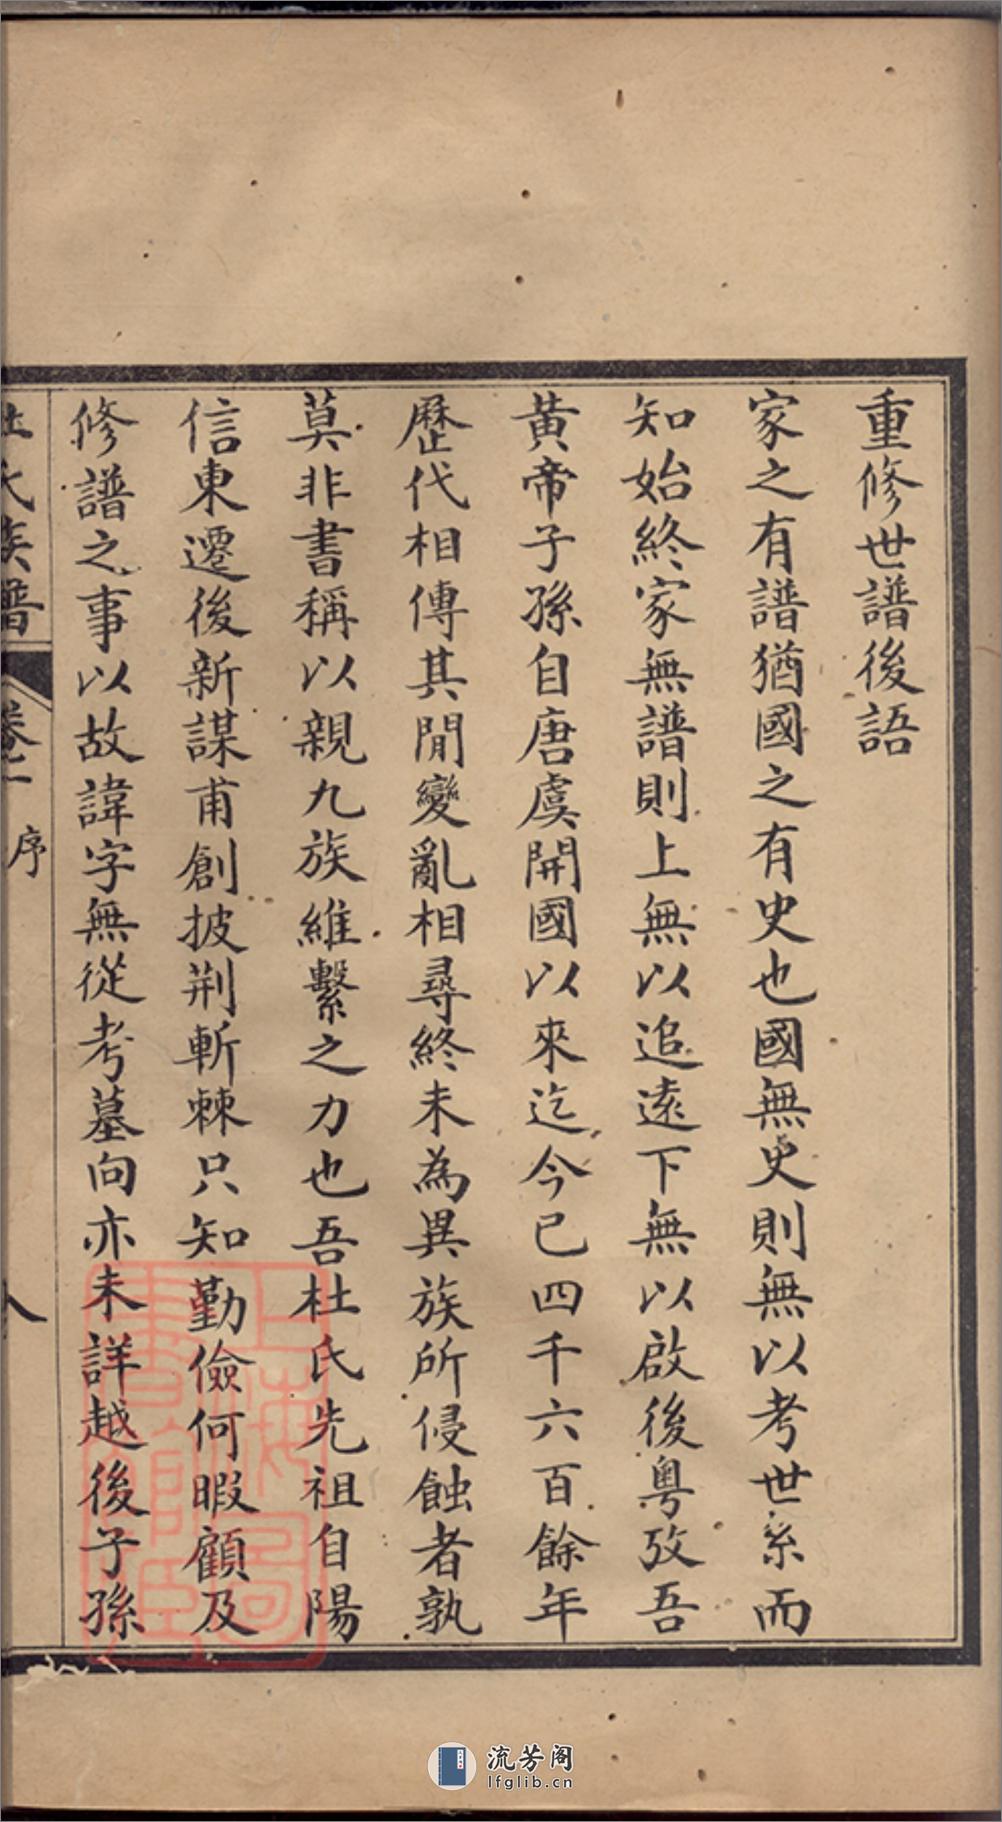 重修世譜後語
家之有譜猶國之有史也國無史則無以考世系而
知始終家無譜則上無以追遠下無以啟後粵攷吾
黃帝子孫自唐虞開國以來迄今已四千六百餘年
歷代相傳其間變亂相尋終未為異族所侵蝕者孰
莫非書稱以親九族維繫之力也吾杜氏先祖自陽
信東遷後新謀甫創披荆斬棘只知勤儉何暇顧及
修譜之事以故諱字無從考墓向亦未詳越後子孫
杜氏族譜 卷二 序 八
上海圖書館藏
流芳阁
lfglib.cn